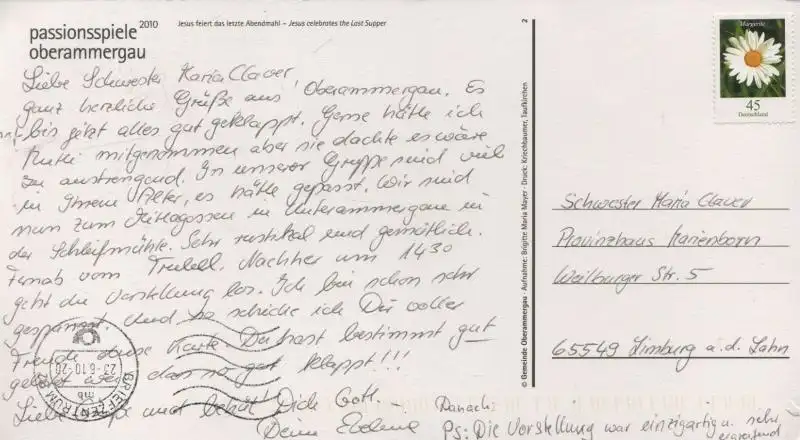 passionsspiele 2010
oberammergau
Jesus feiert das letzte Abendmahl – Jesus celebrates the Last Supper
2
Liebe Schwester Maria Claver,
ganz herzliche Grüße aus Oberammergau. Es
bis jetzt alles gut geklappt. Gerne hätte ich
mitgenommen aber sie dachte es wäre
zu anstrengend. In unserer Gruppe sind viel
in Ihrem Alter, es hätte gepasst. Wir sind
nun zum Mittagessen in Unterammergau in
der Schleifmühle. Sehr rustikal und gemütlich.
Fernab vom Trubel. Nachher um 1430
geht die Vorstellung los. Ich bin schon sehr
gespannt. Und so schicke ich Dir voller
Freude diese Karte. Du hast bestimmt gut
gebetet dass so gut klappt!!!
Liebe und behüt Dich Gott.
Deine
Danach:
PS: Die Vorstellung war einzigartig u. sehr
© Gemeinde Oberammergau · Aufnahme: Brigitte Maria Mayer · Druck: Kriechbaumer, Taufkirchen
Margerite
45
Deutschland
Schwester Maria Claver
Provinzhaus Marienborn
Weilburger Str. 5
65549 Limburg a.d. Lahn
BRIEFZENTRUM
23.6.10-20
mb